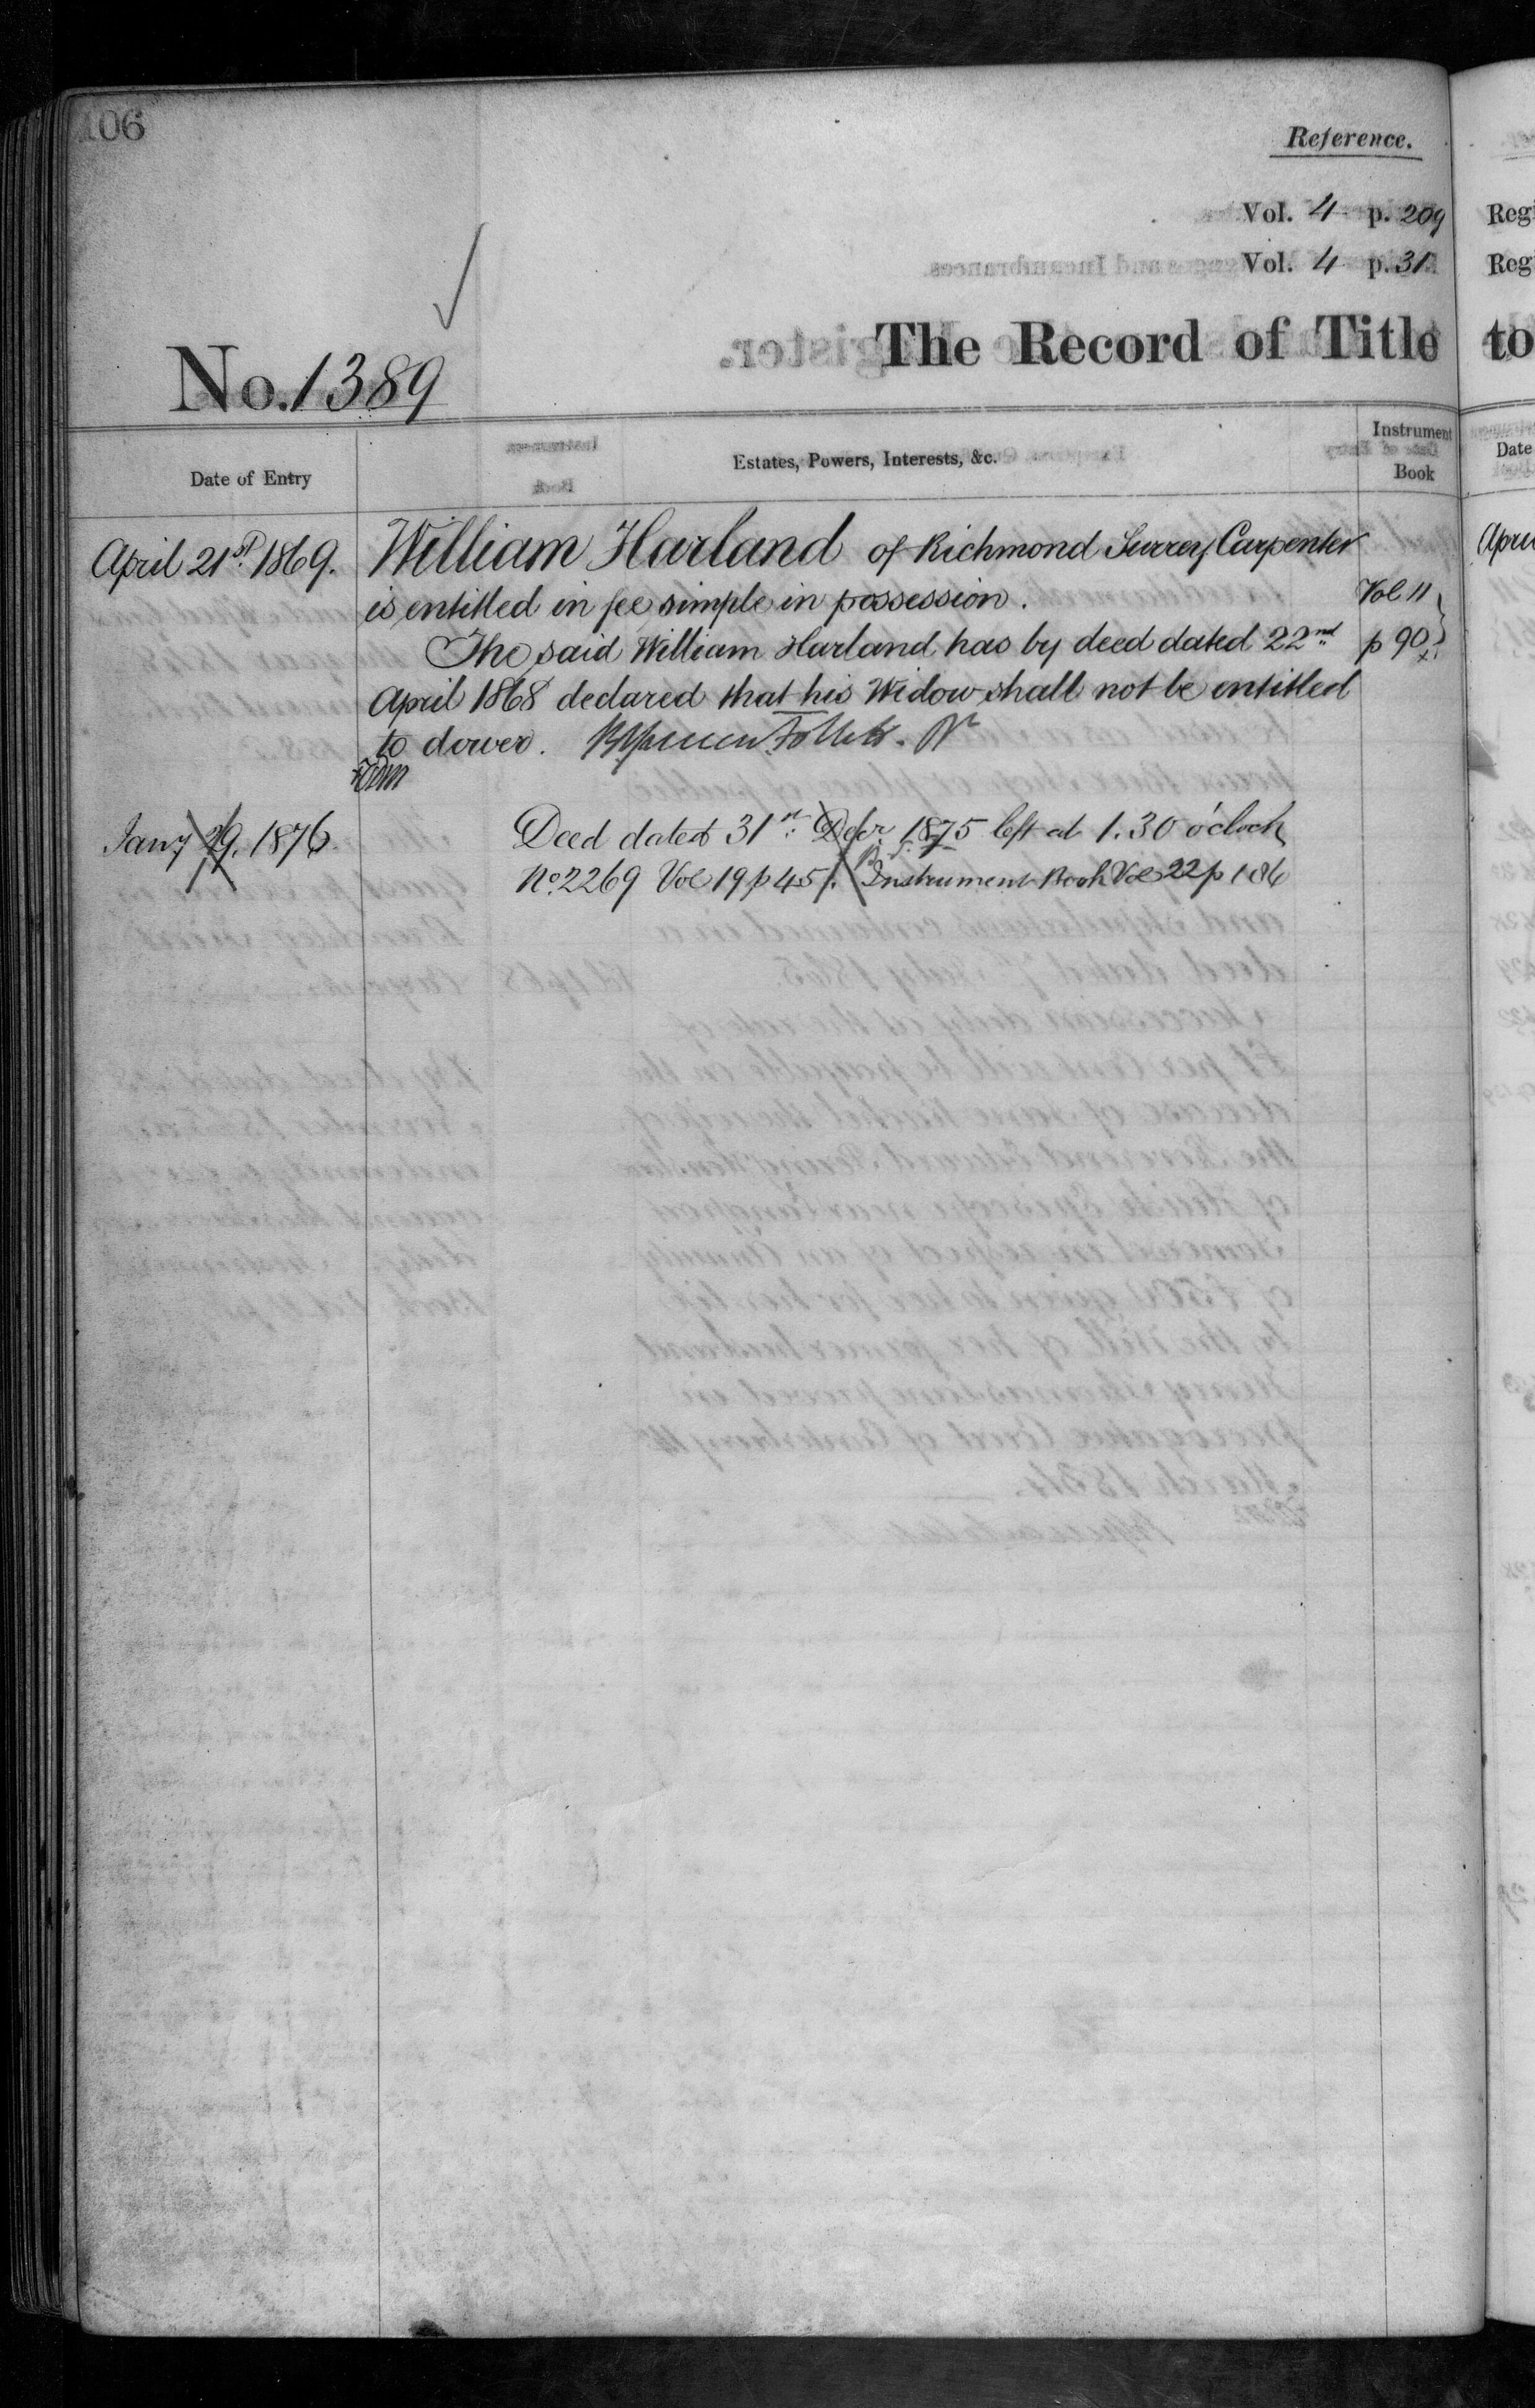 106
Reference.
Vol. 4 p. 209
Vol. 4 p. 31
The Record of Title
No. 1389
Date of Entry
Estates, Powers, Interests, &c.
Instrument
Book
April 21st 1869.
William Harland of Richmond Surrey Carpenter
is entitled in fee simple in possession.
Vol 11
The said William Harland has by deed dated 22nd
p 90
April 1868 declared that his Widow shall not be entitled
to dower.
Jany 29. 1876
Deed dated 31st Decr. 1875 left at 1.30 o'clock
No. 2269 Vol 19 p 451. Instrument Book Vol 22 p 186
Regi
Regi
to
Date
April